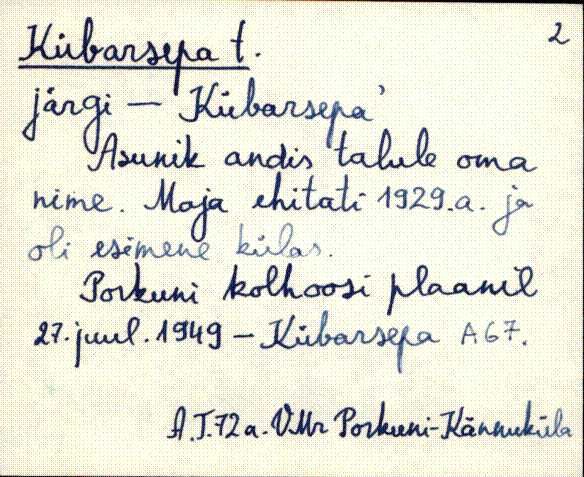 2
Kübarsepa t.
järgi — Kübarsepa'
Asunik andis talule oma
nime. Maja ehitati 1929.a. ja
oli esimene külas.
Porkuni kolhoosi plaanil
27. juul. 1949 – Kübarsepa A67.
A.T.72a. VMr Porkuni-Kännuküla